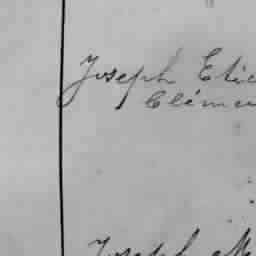 Joseph Etie
Clémen
Joseph M